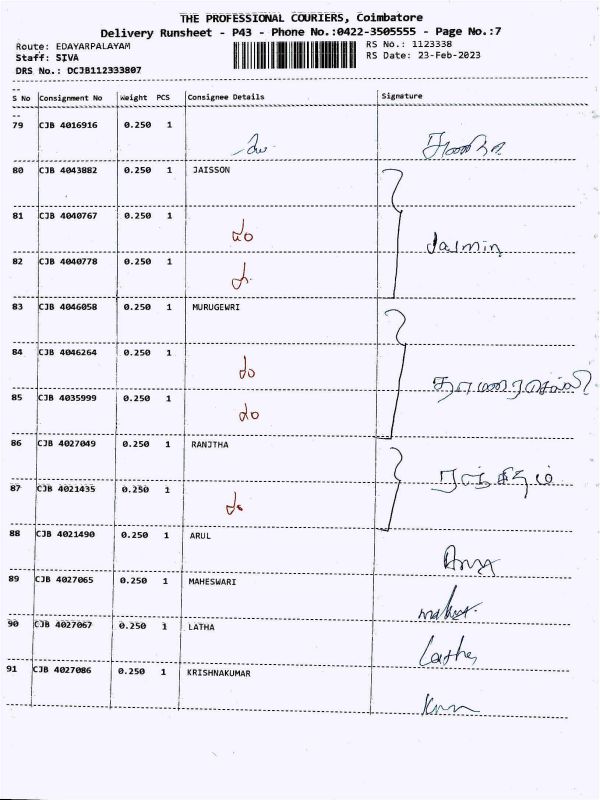 THE PROFESSIONAL COURIERS, Coimbatore
Delivery Runsheet - P43 - Phone No.:0422-3505555 - Page No.:7
Route: EDAYARPALAYAM
RS No.: 1123338
Staff: SIVA
RS Date: 23-Feb-2023
DRS No.: DCJB112333807
S No Consignment No Weight PCS Consignee Details Signature
79 CJB 4016916 0.250 1
80 CJB 4043882 0.250 1 JAISSON
81 CJB 4040767 0.250 1
do Jasmin
82 CJB 4040778 0.250 1
83 CJB 4046058 0.250 1 MURUGEWRI
84 CJB 4046264 0.250 1
do
85 CJB 4035999 0.250 1
do
86 CJB 4027049 0.250 1 RANJTHA
87 CJB 4021435 0.250 1
do
88 CJB 4021490 0.250 1 ARUL
89 CJB 4027065 0.250 1 MAHESWARI
90 CJB 4027067 0.250 1 LATHA
Latha
91 CJB 4027086 0.250 1 KRISHNAKUMAR